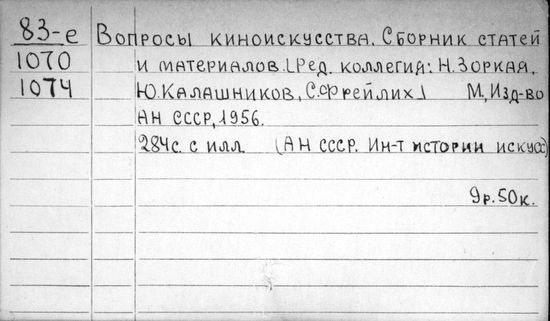 83-е Вопросы киноискусства. Сборник статей
1070 и материалов. [Ред. коллегия: Н. Зоркая,
1074 Ю. Калашников, С. Фрейлих] М, Изд-во
АН СССР, 1956.
284с. с илл (АН СССР. Ин-т истории искусс)
9р. 50к.